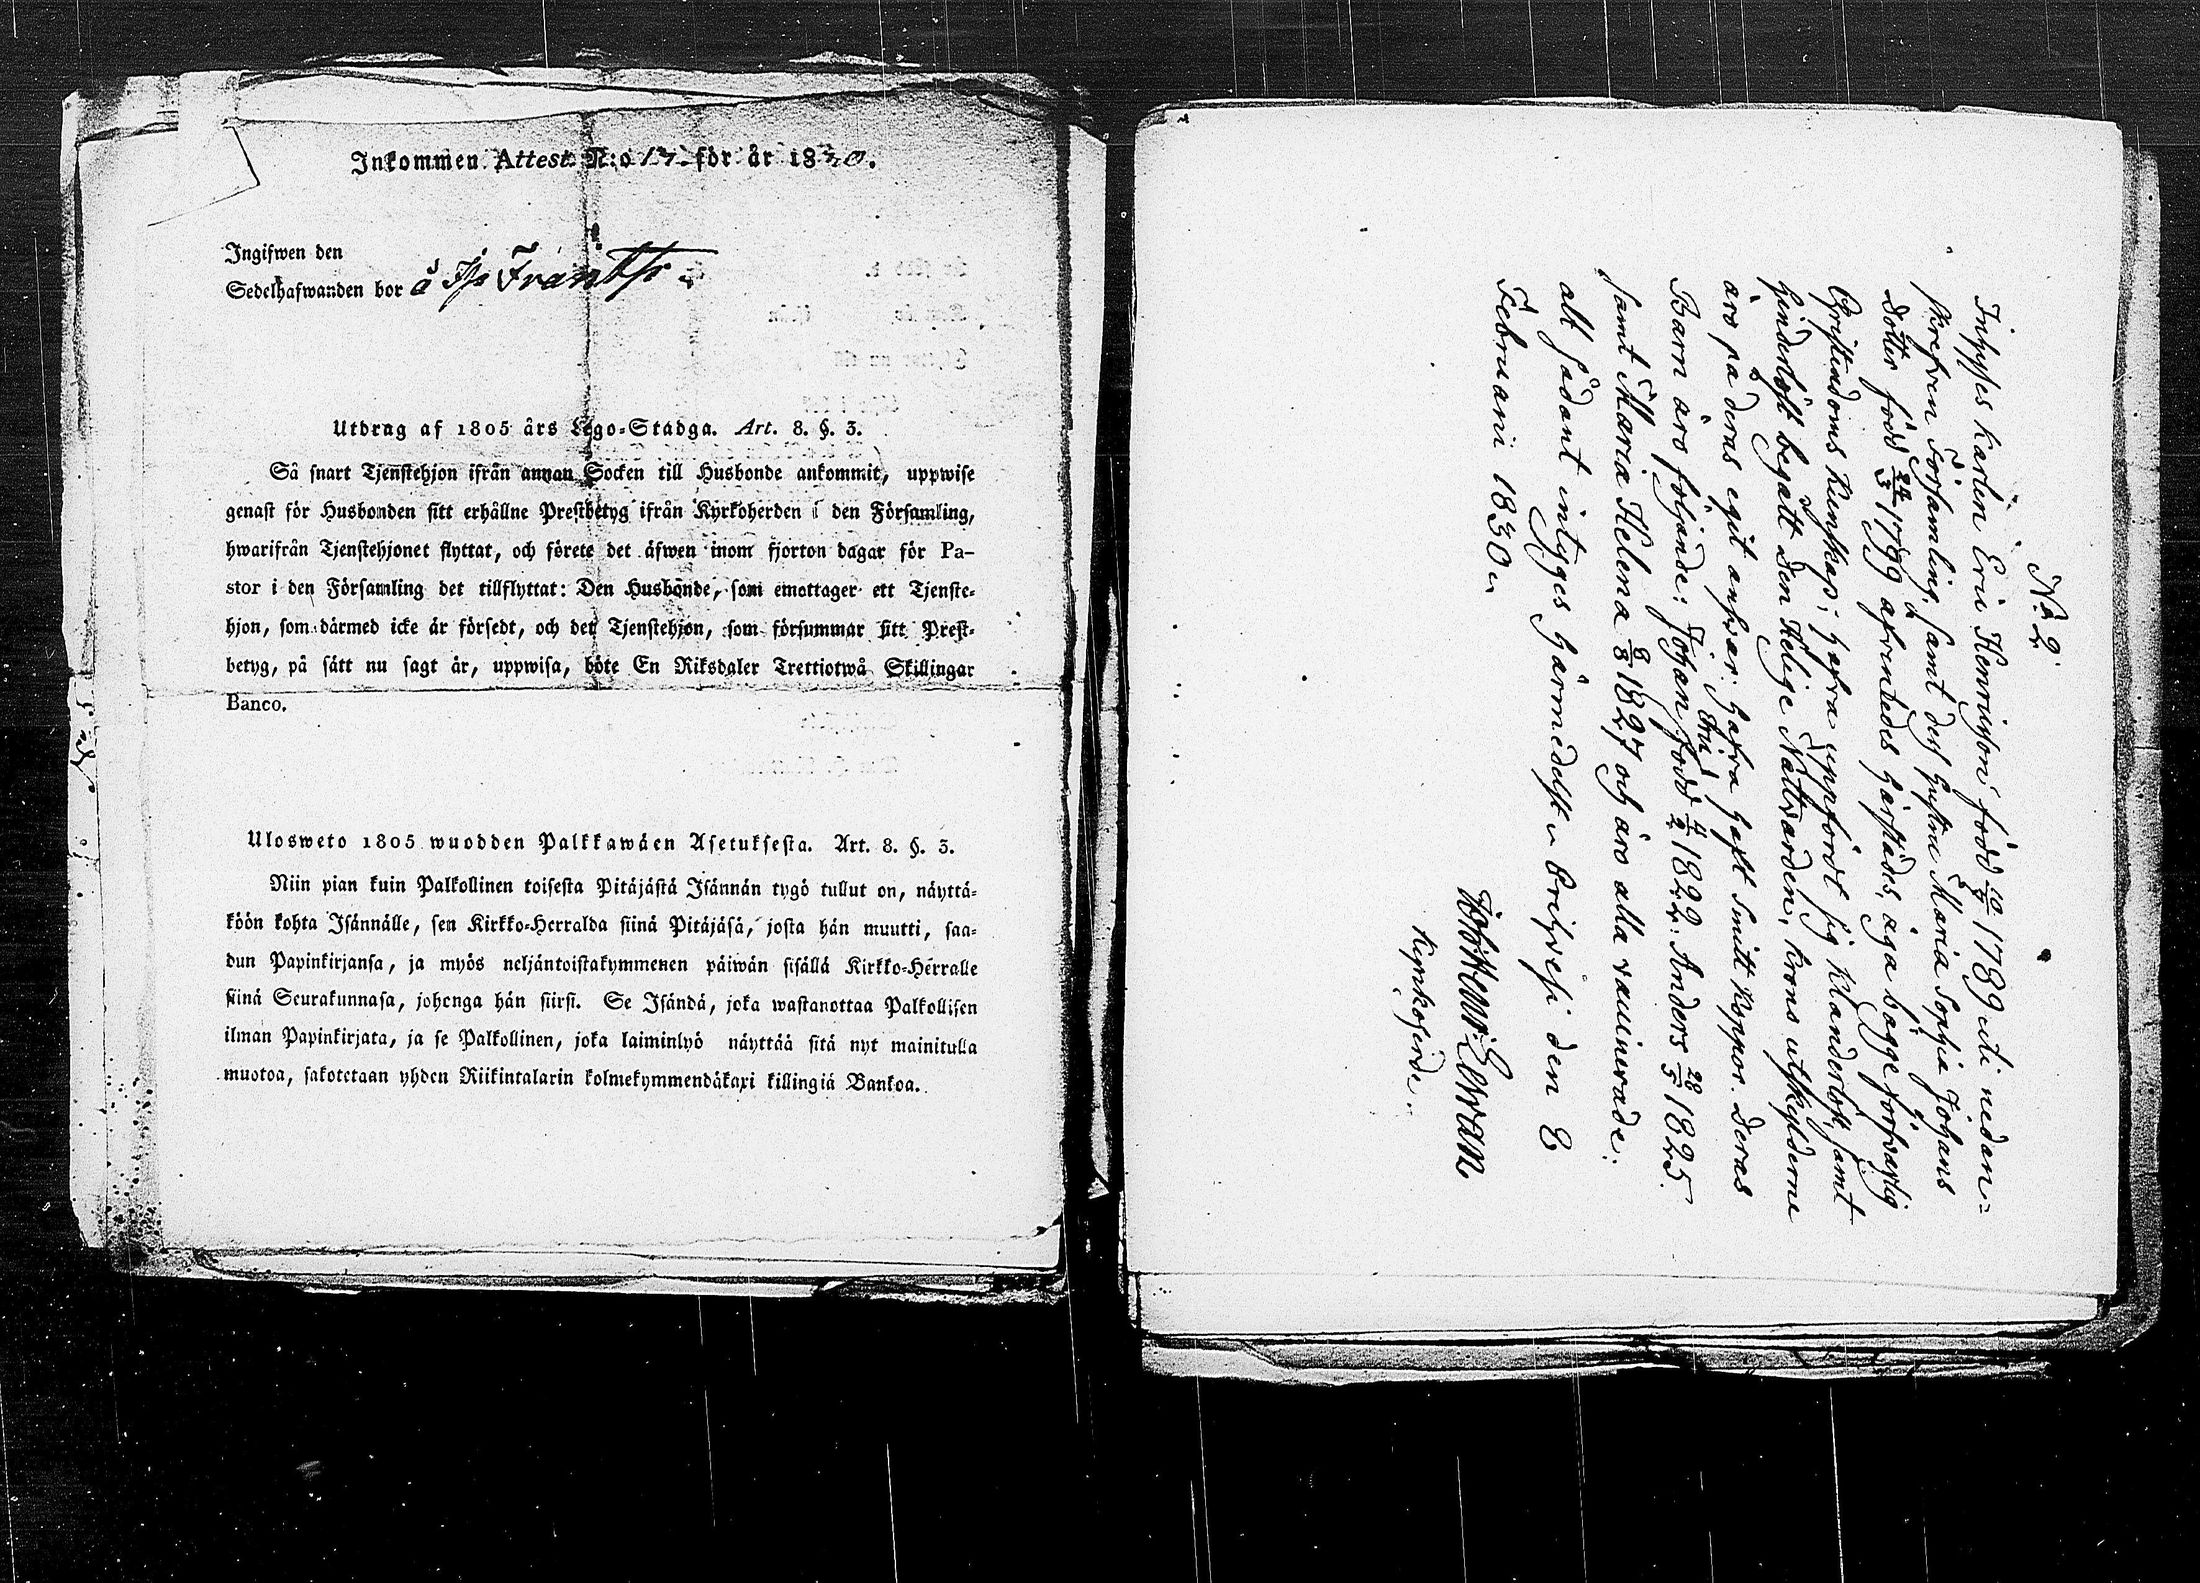 Inkommen Attest N:o 17. för år 1830.
Ingifwen den
Sedelhafwanden bor å
Utdrag af 1805 års Lego-Stadga. Art. 8. §. 3.
Så snart Tjenstehjon ifrån annan Socken till Husbonde ankommit, uppwise
genast för Husbonden sitt erhållne Prestbetyg ifrån Kyrkoherden i den Församling,
hwarifrån Tjenstehjonet flyttat, och förete det äfwen inom fjorton dagar för Pa-
stor i den Församling det tillflyttat: Den Husbonde, som emottager ett Tjenste-
hjon, som därmed icke är försedt, och det Tjenstehjon, som försummar sitt Prest-
betyg, på sätt nu sagt är, uppwisa, böte En Riksdaler Trettiotwå Skillingar
Banco.
Ulosweto 1805 wuodden Palkkawäen Asetuksesta. Art. 8. §. 3.
Niin pian kuin Palkollinen toisesta Pitäjästä Isännän tygö tullut on, näyttä-
köön kohta Isännälle, sen Kirkko-Herralda siinä Pitäjäsä, josta hän muutti, saa-
dun Papinkirjansa, ja myös neljäntoistakymmenen päiwän sisällä Kirkko-Herralle
siinä Seurakunnasa, johonga hän siirsi. Se Isändä, joka wastanottaa Palkollisen
ilman Papinkirjata, ja se Palkollinen, joka laiminlyö näyttää sitä nyt mainitulla
muotoa, sakotetaan yhden Riikintalarin kolmekymmendäkaxi killingiä Bankoa.
No 2.
Inhyses karlen Eric Henricsson född 19/ 1789 uti nedan-
skrefven Församling, samt dess hustru Maria Sophia Johans
dotter född 24/3 1799 afvenledes härstädes, äga bägge försvarlig
Christendoms kunskap; hafva uppfördt sig klanderlöst, samt
hinderlöst begått den Helige Nattvarden. Krono utskylderne
äro på deras egit ansvar; hafva haft Smitt Koppor. Deras
Barn äro följande: Johan Eric född 4/2 1822. Anders 28/5 1825
samt Maria Helena 8/8 1827 och äro alla vaccinerade;
alt sådant intyges härmedelst. Eriksvesi den 8
Februarii 1830.
Kyrkoherde.